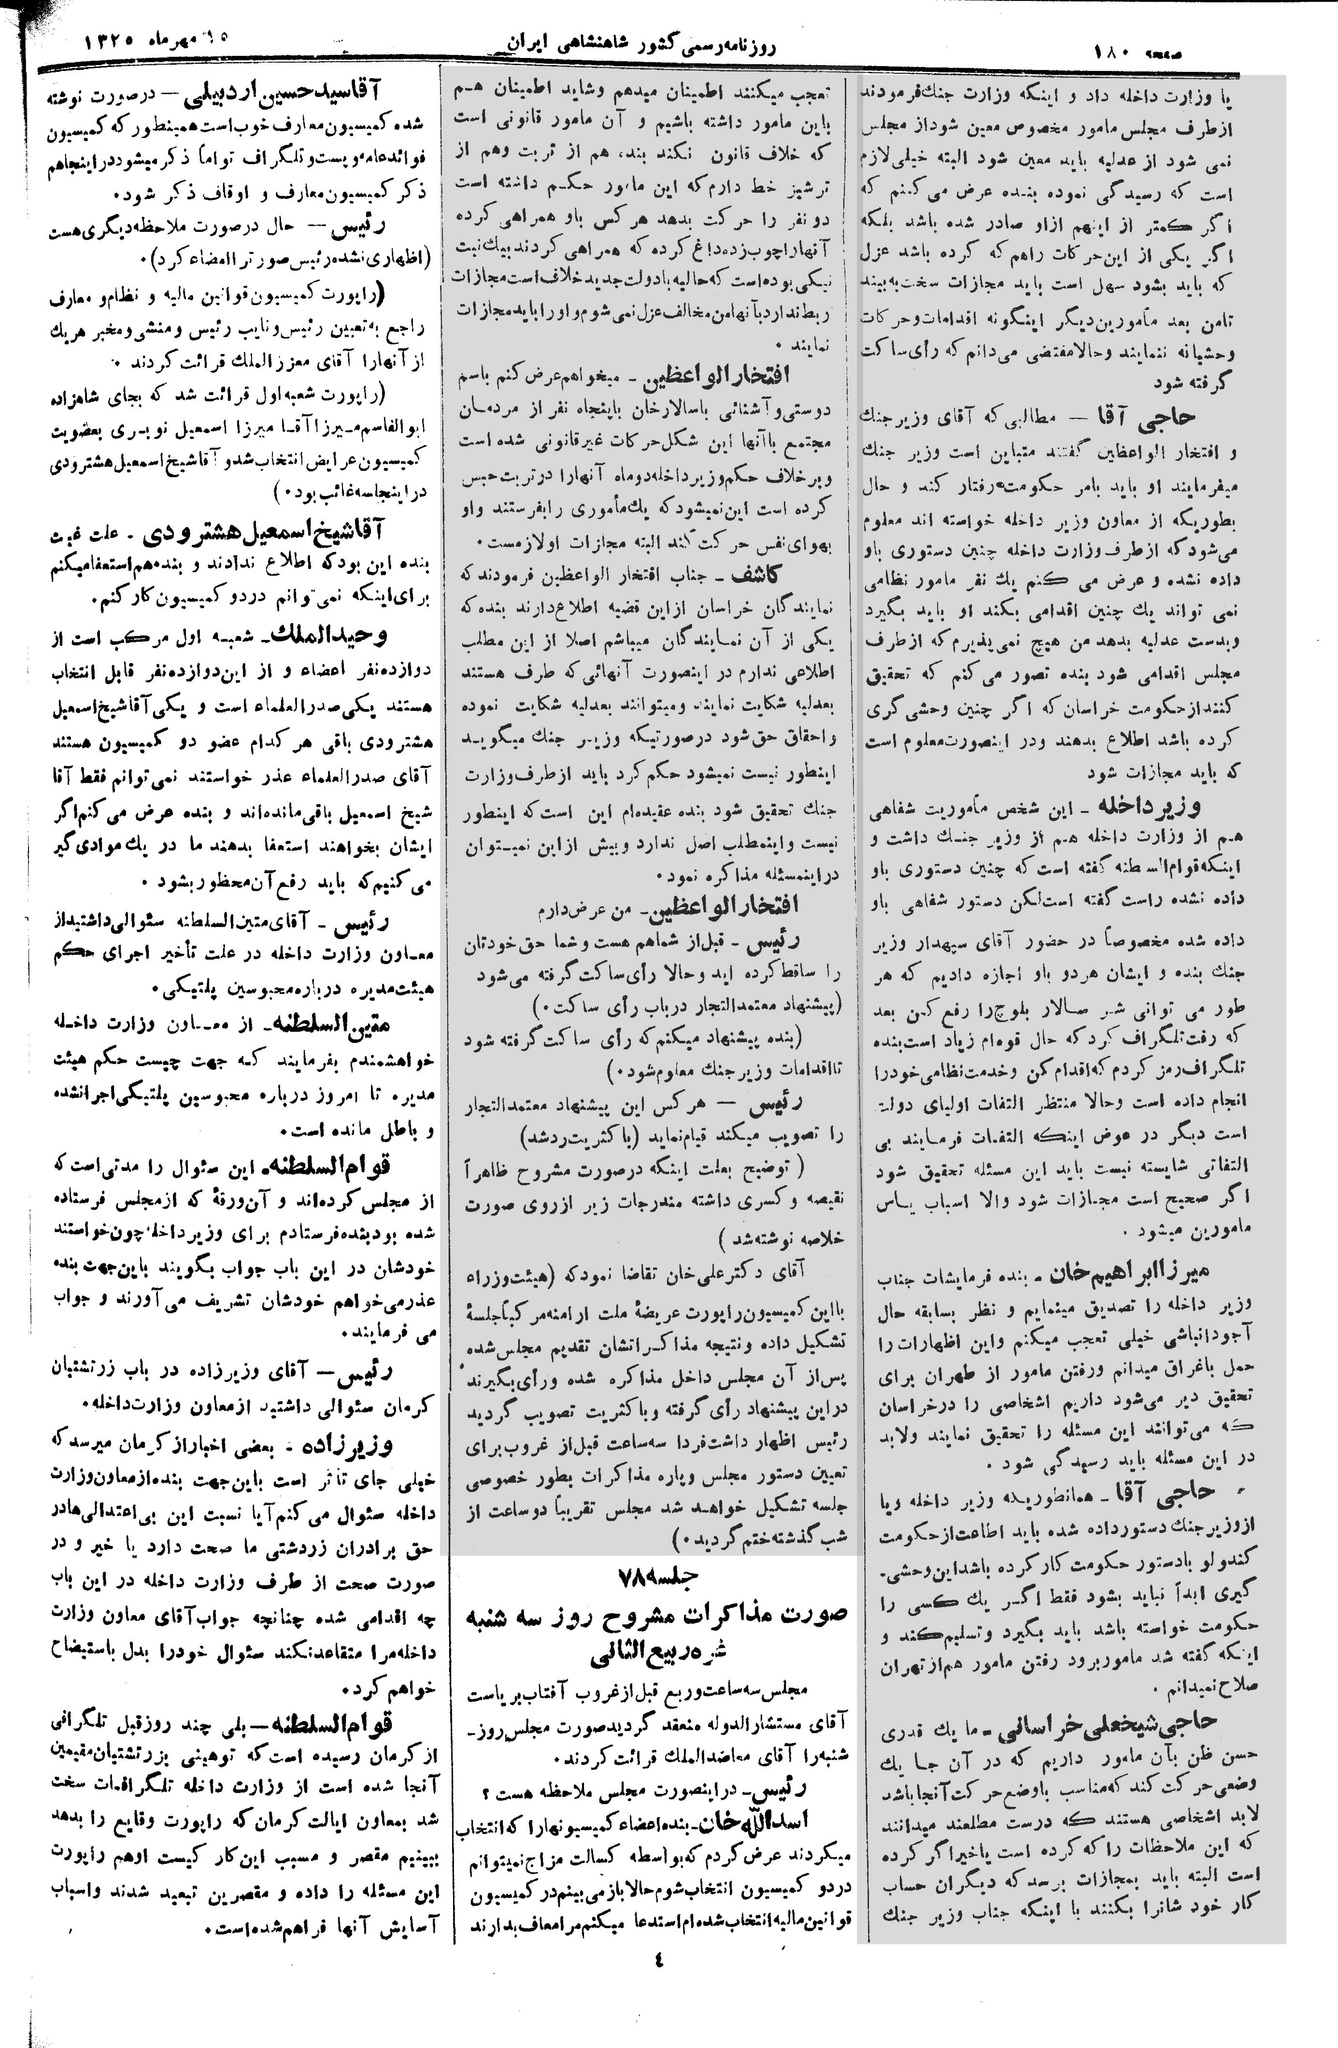 صفحه ۱۸۰
روزنامه رسمی کشور شاهنشاهی ایران
۱۵ مهرماه ۱۳۲۵
یا وزارت داخله داد و اینکه وزارت جنك فرمودند
از طرف مجلس مامور مخصوص معین شود از مجلس
نمی شود از عدلیه باید معین شود البته خیلی لازم
است که رسیدگی نموده بنده عرض می کنم که
اگر کمتر از اینهم ازاو صادر شده باشد بلکه
اگر یکی از این حرکات راهم که کرده باشد عزل
که باید بشود سهل است باید مجازات سخت به بیند
تامن بعد مأمورین دیگر اینگونه اقدامات و حرکات
وحشیانه ننمایند و حالا مقتضی می دانم که رأی ساکت
گرفته شود
حاجی آقا — مطالبی که آقای وزیر جنك
و افتخار الواعظین گفتند متباین است وزیر جنك
میفرمایند او باید بامر حکومت رفتار کند و حال
بطوریکه از معاون وزیر داخله خواسته اند معلوم
می‌شود که از طرف وزارت داخله چنین دستوری باو
داده نشده و عرض می کنم یك نفر مامور نظامی
نمی تواند یك چنین اقدامی بکند او باید بگیرد
وبدست عدلیه بدهد من هیچ نمی پذیرم که از طرف
مجلس اقدامی شود بنده تصور می کنم که تحقیق
کنند از حکومت خراسان که اگر چنین وحشی گری
کرده باشد اطلاع بدهند ودر اینصورت معلوم است
که باید مجازات شود
وزیر داخله — این شخص مأموریت شفاهی
هم از وزارت داخله هم از وزیر جنك داشت و
اینکه قوام السطنه گفته است که چنین دستوری باو
داده نشده راست گفته است لکن دستور شفاهی باو
داده شده مخصوصاً در حضور آقای سپهدار وزیر
جنك بنده و ایشان هردو باو اجازه دادیم که هر
طور می توانی شر سالار بلوچ را رفع کن بعد
که رفت تلگراف کرد که حال قوه‌ام زیاد است بنده
تلگراف رمز کردم که اقدام کن و خدمت نظامی خود را
انجام داده است و حالا منتظر التفات اولیای دولت
است دیگر در عوض اینکه التفات فرمایند بی
التفاتی شایسته نیست باید این مسئله تحقیق شود
اگر صحیح است مجازات شود والا اسباب یاس
مامورین میشود .
میرزا ابراهیم خان — بنده فرمایشات جناب
وزیر داخله را تصدیق مینمایم و نظر بسابقه حال
آجودانباشی خیلی تعجب میکنم واین اظهارات را
حمل باغراق میدانم ورفتن مامور از طهران برای
تحقیق دیر می‌شود داریم اشخاصی را در خراسان
که می توانند این مسئله را تحقیق نمایند ولابد
در این مسئله باید رسیدگی شود .
حاجی آقا — همانطوریکه وزیر داخله ویا
از وزیر جنك دستور داده شده باید اطاعت از حکومت
کند ولو بادستور حکومت کار کرده باشد این وحشی-
گیری ابداً نباید بشود فقط اگر یك کسی را
حکومت خواسته باشد باید بگیرد و تسلیم کند و
اینکه گفته شد مامور برود رفتن مامور هم از تهران
صلاح نمیدانم .
حاجی شیخعلی خراسانی — ما یك قدری
حسن ظن بآن مامور داریم که در آن جا یك
وضعی حرکت کند که مناسب باوضع حرکت آنجا باشد
لابد اشخاصی هستند که درست مطلعند میدانند
که این ملاحظات را که کرده است یا خیر اگر کرده
است البته باید بمجازات برسد که دیگران حساب
کار خود شانرا بکنند با اینکه جناب وزیر جنك
تعجب میکنند اطمینان میدهم وشاید اطمینان هم
باین مامور داشته باشیم و آن مامور قانونی است
که خلاف قانون نکند بند، هم از تربت وهم از
ترشیز خط دارم که این مامور حکم داشته است
دو نفر را حرکت بدهد هرکس باو همراهی کرده
آنها را چوب زده داغ کرده که همراهی کردند بیك نیت
نیکی بوده است که حالیه بادولت جدید خلاف است مجازات
ربط ندارد بآنها من مخالف عزل نمی شوم و او را باید مجازات
نمایند .
افتخار الواعظین — میخواهم عرض کنم باسم
دوستی و آشنائی باسالارخان باپنجاه نفر از مردمان
مجتمع باآنها این شکل حرکات غیرقانونی شده است
و برخلاف حکم وزیر داخله دو ماه آنها را در تربت حبس
کرده است این نمیشود که یك مأموری را بفرستند واو
بهوای نفس حرکت کند البته مجازات اولازمست .
کاشف — جناب افتخار الواعظین فرمودند که
نمایندگان خراسان از این قضیه اطلاع دارند بنده که
یکی از آن نمایندگان میباشم اصلا از این مطلب
اطلاعی ندارم در اینصورت آنهائی که طرف هستند
بعدلیه شکایت نمایند و میتوانند بعدلیه شکایت نموده
و احقاق حق شود در صورتیکه وزیر جنك میگوید
اینطور نیست نمیشود حکم کرد باید از طرف وزارت
جنك تحقیق شود بنده عقیده‌ام این است که اینطور
نیست و اینمطلب اصل ندارد و بیش از این نمیتوان
در اینمسئله مذاکره نمود .
افتخار الواعظین — من عرض دارم
رئیس — قبل از شماهم هست و شما حق خودتان
را ساقط کرده اید و حالا رأی ساکت گرفته می‌شود
(پیشنهاد معتمدالتجار در باب رأی ساکت .)
(بنده پیشنهاد میکنم که رأی ساکت گرفته شود
تا اقدامات وزیر جنك معلوم شود .)
رئیس — هرکس این پیشنهاد معتمدالتجار
را تصویب میکند قیام نماید (باکثریت رد شد)
( توضیح بعلت اینکه در صورت مشروح ظاهراً
نقیصه و کسری داشته مندرجات زیر از روی صورت
خلاصه نوشته شد )
آقای دکتر علی خان تقاضا نمود که (هیئت وزراء
با این کمیسیون راپورت عریضهٔ ملت ارامنه مرکباً جلسهٔ
تشکیل داده و نتیجه مذاکراتشان تقدیم مجلس شده
پس از آن مجلس داخل مذاکره شده و رأی بگیرند
در این پیشنهاد رأی گرفته و باکثریت تصویب گردید
رئیس اظهار داشت فردا سه ساعت قبل از غروب برای
تعیین دستور مجلس و پاره مذاکرات بطور خصوصی
جلسه تشکیل خواهد شد مجلس تقریباً دو ساعت از
شب گذشته ختم گردید .)
جلسه ۷۸
صورت مذاکرات مشروح روز سه شنبه
غره ربیع الثانی
مجلس سه ساعت و ربع قبل از غروب آفتاب بریاست
آقای مستشار الدوله منعقد گردید صورت مجلس روز-
شنبه را آقای معاضد الملك قرائت کردند .
رئیس — در اینصورت مجلس ملاحظه هست ؟
اسدالله خان — بنده اعضاء کمیسیونها را که انتخاب
میکردند عرض کردم که بواسطه کسالت مزاج نمیتوانم
در دو کمیسیون انتخاب شوم حالا باز می بینم در کمیسیون
قوانین مالیه انتخاب شده ام استدعا میکنم مرا معاف بدارند
آقا سید حسین اردبیلی — در صورت نوشته
شده کمیسیون معارف خوب است همینطور که کمیسیون
فوائد عامه و پست و تلگراف تواماً ذکر میشود در اینجا هم
ذکر کمیسیون معارف و اوقاف ذکر شود .
رئیس — حال در صورت ملاحظه دیگری هست
(اظهاری نشده رئیس صورت را امضاء کرد) .
(راپورت کمیسیون قوانین مالیه و نظام و معارف
راجع به تعیین رئیس و نایب رئیس و منشی و مخبر هریك
از آنها را آقای معزز الملك قرائت کردند .
(راپورت شعبه اول قرائت شد که بجای شاهزاده
ابوالقاسم میرزا آقا میرزا اسمعیل نوبری بعضویت
کمیسیون عرایض انتخاب شد و آقا شیخ اسمعیل هشترودی
در اینجلسه غائب بود .)
آقا شیخ اسمعیل هشترودی — علت غیبت
بنده این بود که اطلاع ندادند و بنده هم استعفا میکنم
برای اینکه نمی توانم در دو کمیسیون کار کنم .
وحید الملك — شعبه اول مرکب است از
دوازده نفر اعضاء و از این دوازده نفر قابل انتخاب
هستند یکی صدر العلماء است و یکی آقا شیخ اسمعیل
هشترودی باقی هر کدام عضو دو کمیسیون هستند
آقای صدر العلماء عذر خواستند نمی توانم فقط آقا
شیخ اسمعیل باقی مانده‌اند و بنده عرض می کنم اگر
ایشان بخواهند استعفا بدهند ما در یك موادی گیر
می کنیم که باید رفع آن محظور بشود .
رئیس — آقای متین السلطنه سئوالی داشتید از
معاون وزارت داخله در علت تأخیر اجرای حکم
هیئت مدیره درباره محبوسین پلتیکی .
متین السلطنه — از معاون وزارت داخله
خواهشمندم بفرمایند که جهت چیست حکم هیئت
مدیره تا امروز درباره محبوسین پلتیکی اجرا نشده
و باطل مانده است .
قوام السلطنه — این سئوال را مدتی است که
از مجلس کرده‌اند و آن ورقهٔ که از مجلس فرستاده
شده بود بنده فرستادم برای وزیر داخله چون خواستند
خودشان در این باب جواب بگویند باین جهت بنده
عذر می خواهم خودشان تشریف می آورند و جواب
می فرمایند .
رئیس — آقای وزیرزاده در باب زرتشتیان
کرمان سئوالی داشتید از معاون وزارت داخله .
وزیرزاده — بعضی اخبار از کرمان میرسد که
خیلی جای تأثر است باین جهت بنده از معاون وزارت
داخله سئوال می کنم آیا نسبت این بی اعتدالی ها در
حق برادران زردشتی ما صحت دارد یا خیر و در
صورت صحت از طرف وزارت داخله در این باب
چه اقدامی شده چنانچه جواب آقای معاون وزارت
داخله مرا متقاعد نکند سئوال خودرا بدل باستیضاح
خواهم کرد .
قوام السلطنه — بلی چند روز قبل تلگرافی
از کرمان رسیده است که توهینی بزرتشتیان مقیمین
آنجا شده است از وزارت داخله تلگرافات سخت
شد بمعاون ایالت کرمان که راپورت وقایع را بدهد
ببینیم مقصر و مسبب این کار کیست اوهم راپورت
این مسئله را داده و مقصرین تبعید شدند واسباب
آسایش آنها فراهم شده است .
٤